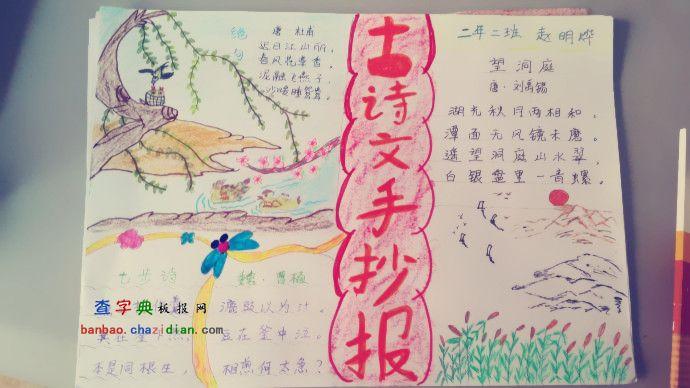 绝句
唐 杜甫
迟日江山丽,
春风花草香,
泥融飞燕子,
沙暖睡鸳鸯。
古诗文手抄报
二年二班 赵明烨
望洞庭
唐·刘禹锡
湖光秋月两相和,
潭面无风镜未磨。
遥望洞庭山水翠,
白银盘里一青螺。
七步诗
魏·曹植
漉豉以为汁。
豆在釜中泣。
本是同根生,
相煎何太急?
查字典板报网
banbao.chazidian.com